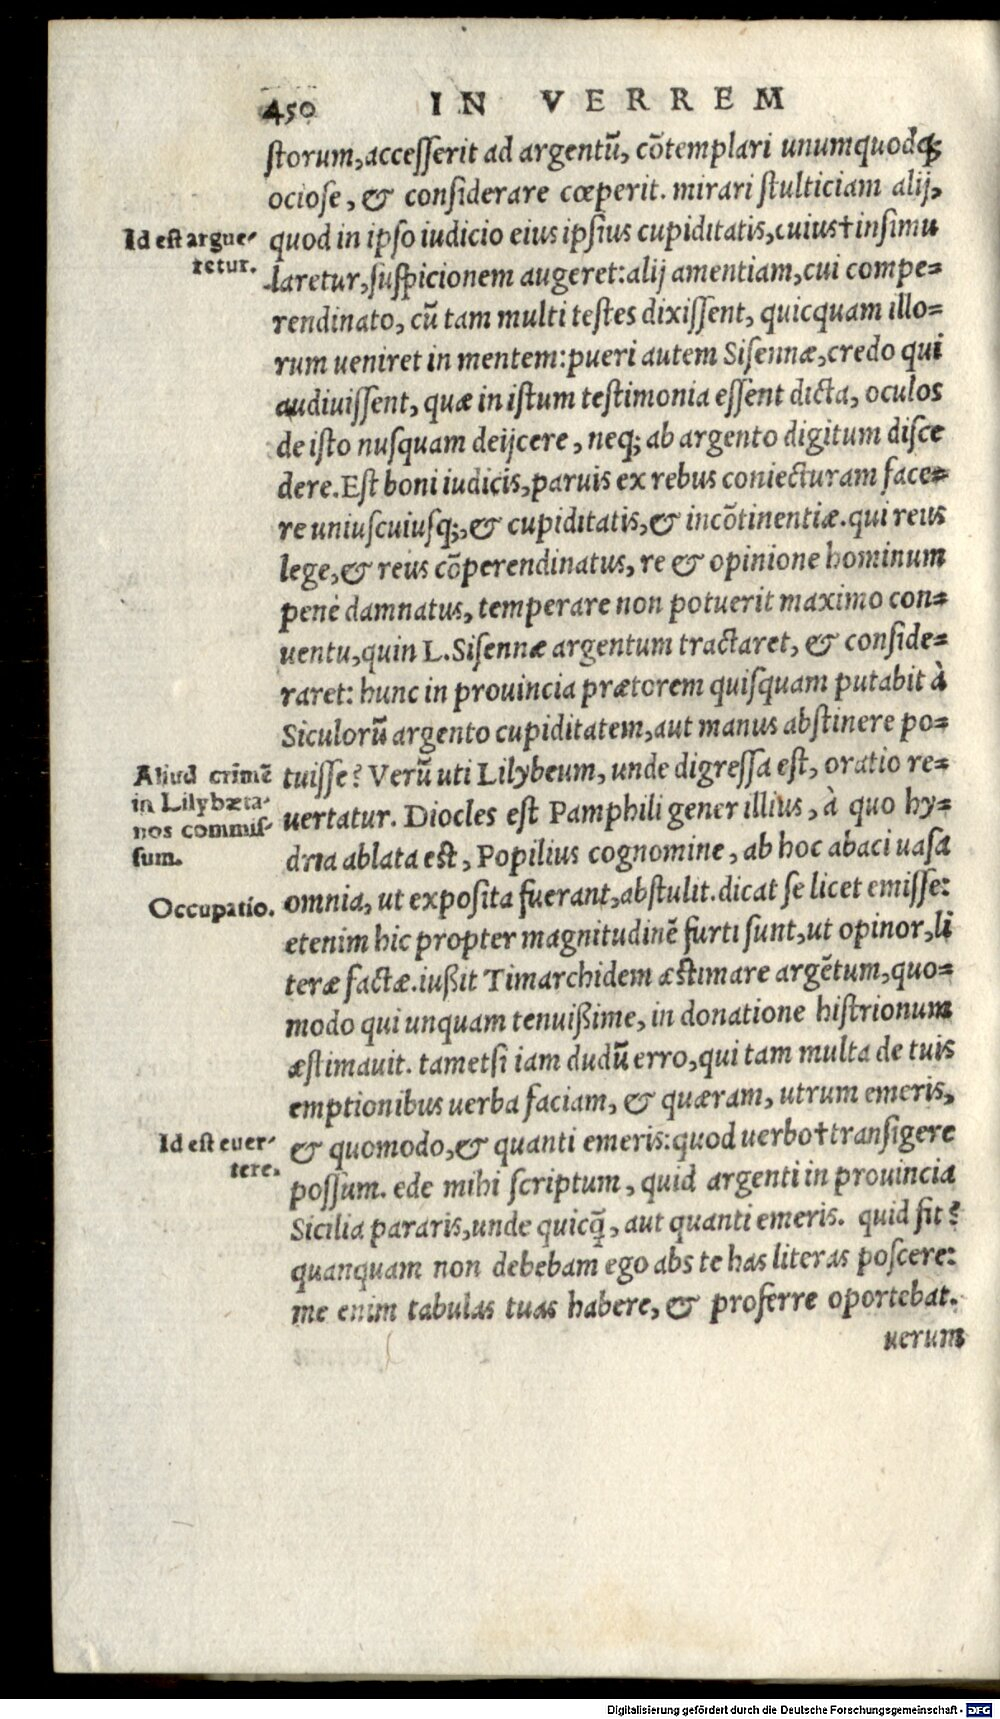 450 IN VERREM
ſtorum,acceſſerit ad argentū, cōtemplari unumquodq;
ocioſe, & conſiderare cœperit. mirari ſtulticiam alij,
Id eſt argue-
retur.
quod in ipſo iudicio eius ipſius cupiditatis,cuius†inſimu
laretur,ſuſpicionem augeret:alij amentiam,cui compe=
rendinato, cū tam multi teſtes dixiſſent, quicquam illo=
rum ueniret in mentem:pueri autem Siſennæ,credo qui
audiuiſſent, quæ in iſtum teſtimonia eſſent dicta, oculos
de iſto nuſquam deijcere, neq; ab argento digitum diſce
dere.Eſt boni iudicis,paruis ex rebus coniecturam face=
re uniuſcuiuſq;,& cupiditatis,& incōtinentiæ.qui reus
lege,& reus cōperendinatus, re & opinione hominum
penè damnatus, temperare non potuerit maximo con=
uentu,quin L.Siſennæ argentum tractaret, & conſide=
raret: hunc in prouincia prætorem quiſquam putabit à
Siculorū argento cupiditatem,aut manus abſtinere po=
Aliud crimē
in Lilybæta-
nos commiſ-
ſum.
tuiſſe? Verū uti Lilybeum, unde digreſſa eſt, oratio re=
uertatur. Diocles eſt Pamphili gener illius, à quo hy=
dria ablata eſt, Popilius cognomine, ab hoc abaci uaſa
Occupatio.
omnia, ut expoſita fuerant,abſtulit.dicat ſe licet emiſſe:
etenim hic propter magnitudinē furti ſunt,ut opinor,li
teræ factæ.iußit Timarchidem æſtimare argētum,quo=
modo qui unquam tenuißime, in donatione hiſtrionum
æſtimauit. tametſi iam dudū erro,qui tam multa de tuis
emptionibus uerba faciam, & quæram, utrum emeris,
Id eſt euer-
tere.
& quomodo,& quanti emeris:quod uerbo†tranſigere
poſſum. ede mihi ſcriptum, quid argenti in prouincia
Sicilia pararis,unde quicq̄, aut quanti emeris. quid fit?
quanquam non debebam ego abs te has literas poſcere:
me enim tabulas tuas habere, & proferre oportebat.
uerum
Digitalisierung gefördert durch die Deutsche Forschungsgemeinschaft - DFG